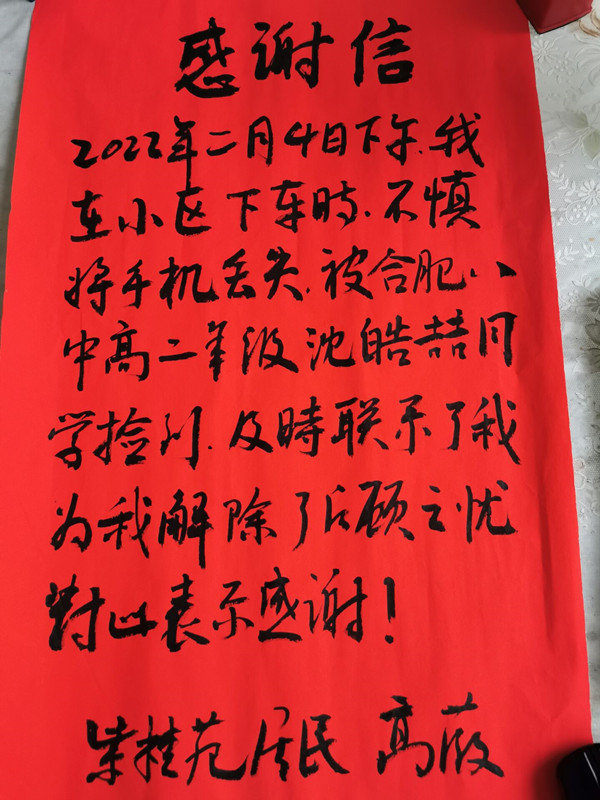 感谢信
2022年二月4日下午.我
在小区下车時.不慎
将手机丢失.被合肥八
中高二年级沈皓喆同
学捡到.及時联系了我
为我解除了后顾之忧
對此表示感谢!
朱桂苑居民 高薇